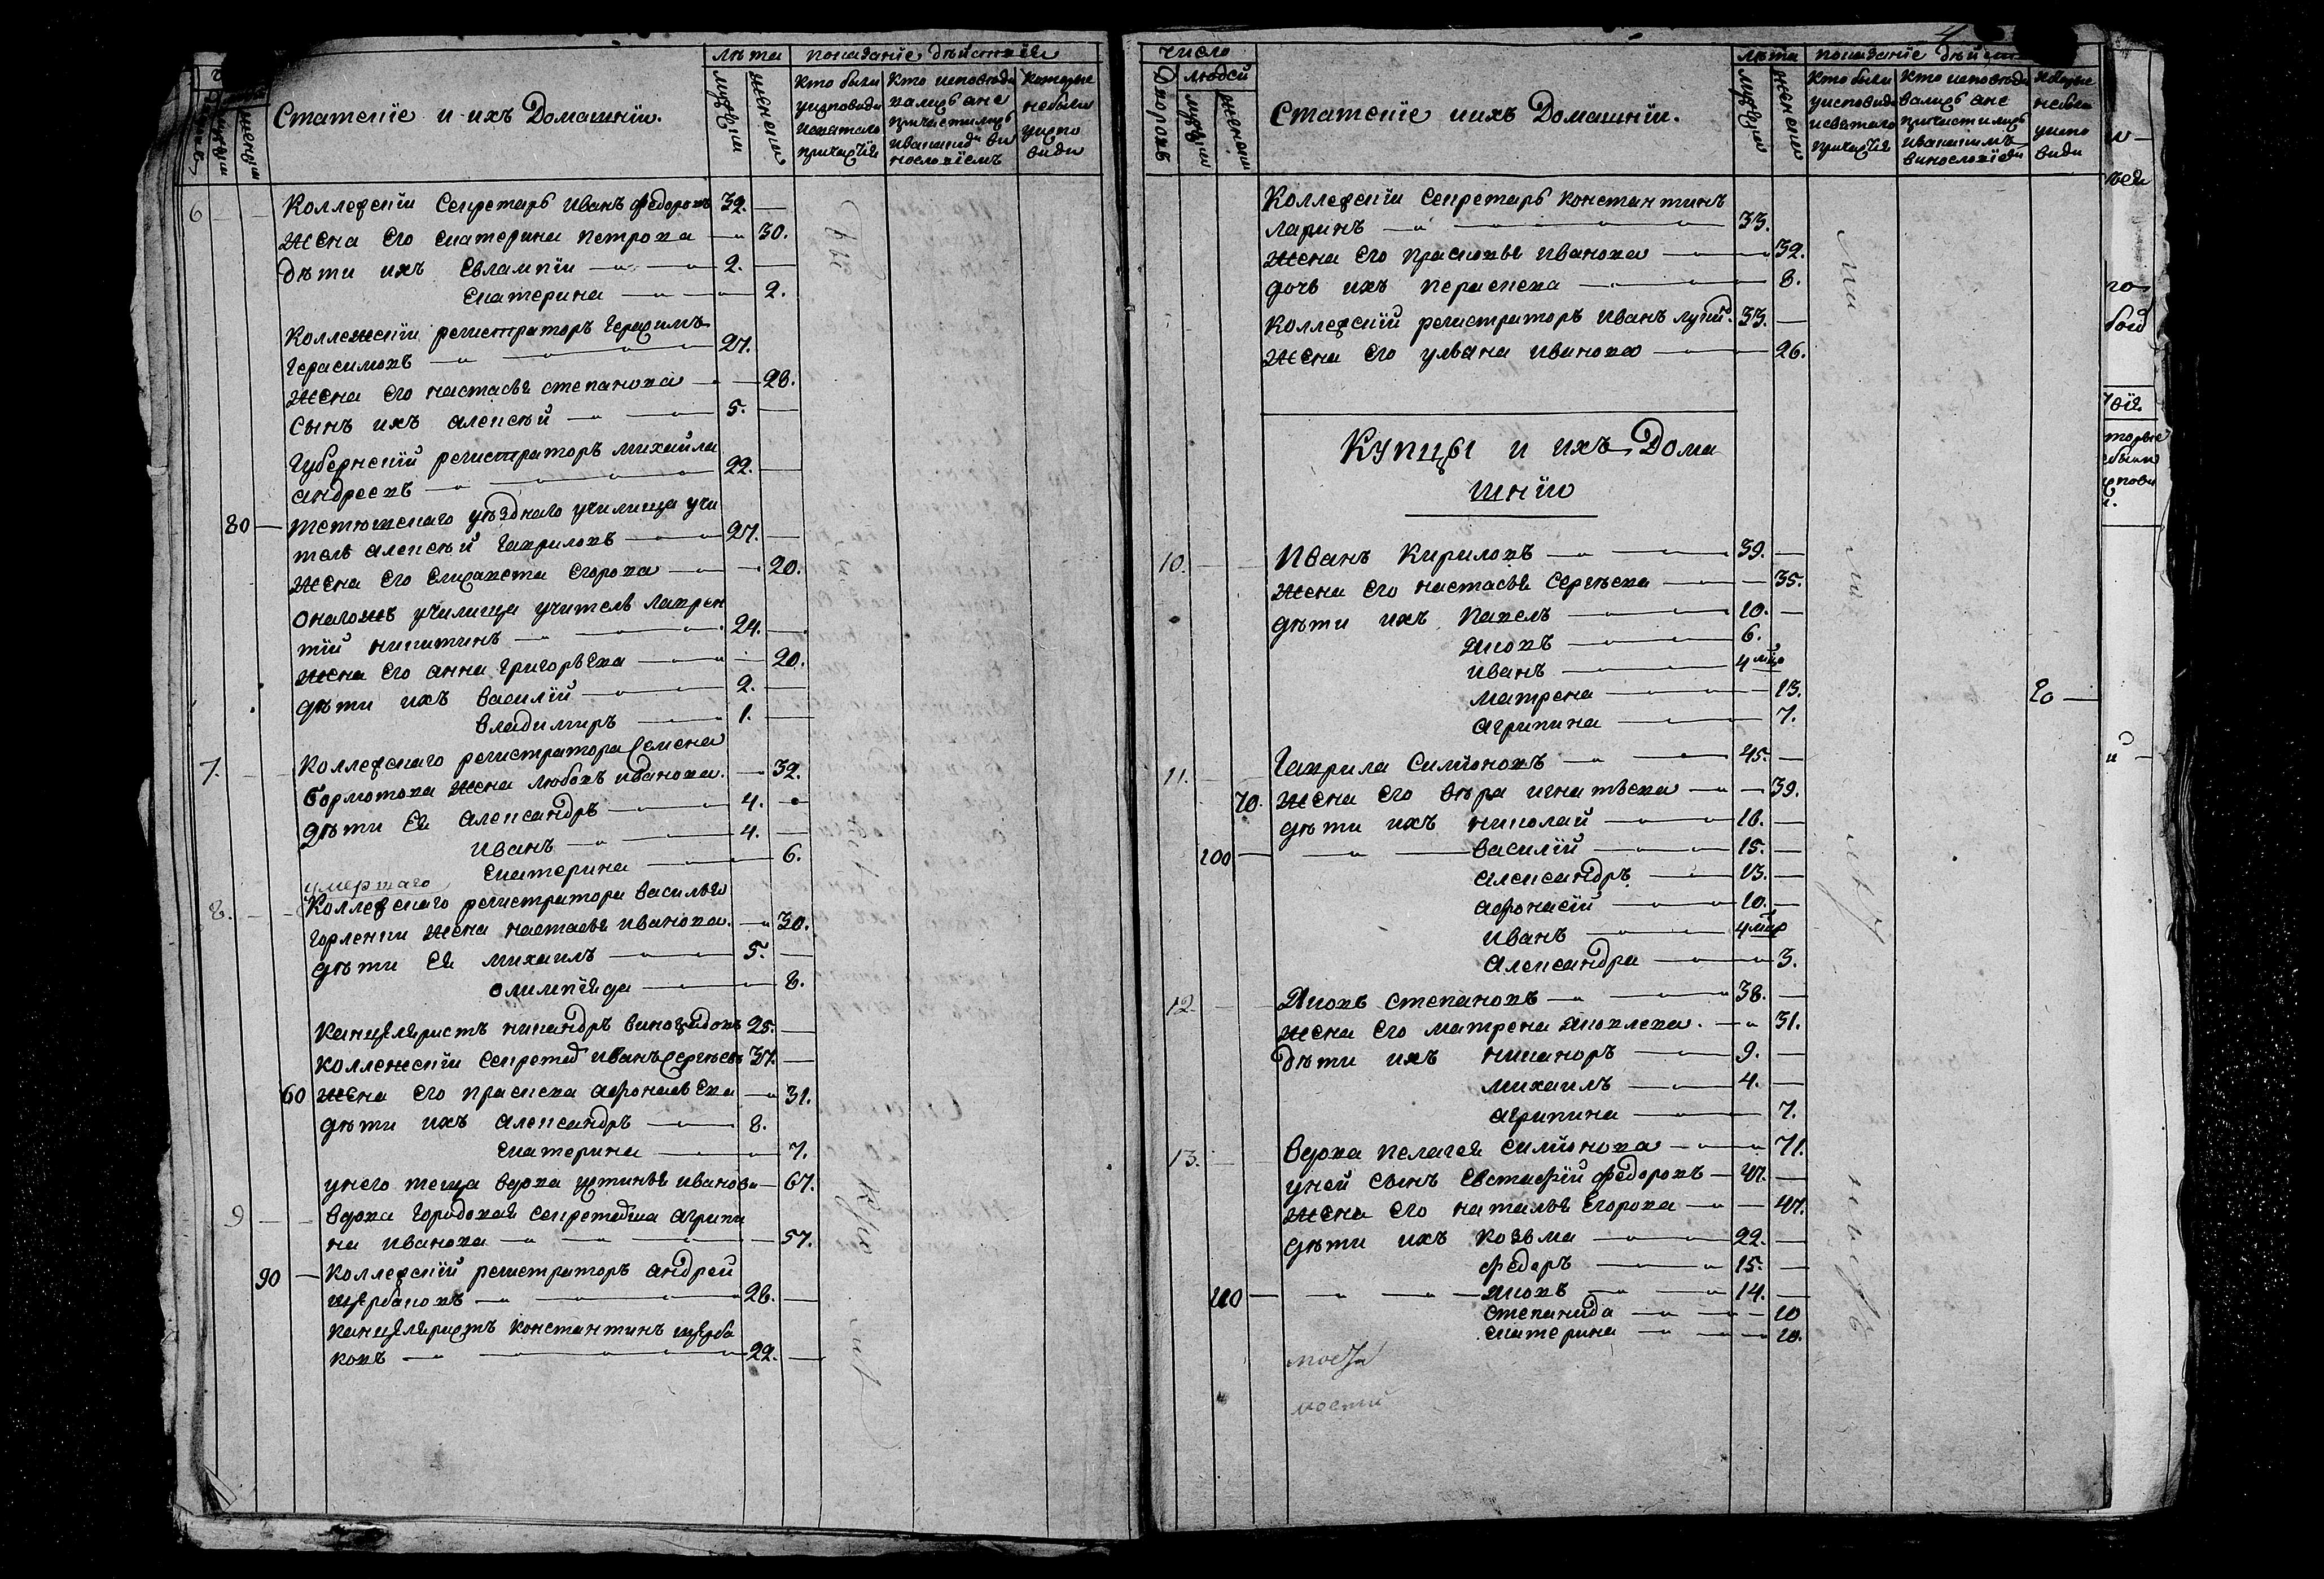 лѣта показанїе дѣйствїя
Статскїе и ихъ Домашнїи.
мужски
женски
Кто были
уисповеди
исвятаго
причастїя
Кто исповеда
лись ане
причастились
которые
небыли
уиспо
веди
6 Коллежскїи Секретарь Иванъ Федоровъ 32.
Жена Его Екатерина Петрова 30.
дѣти ихъ Евлампїи 2.
Екатерина 2.
Коллежскїи регистраторъ Герасимъ
Герасимовъ 27.
Жена Его настасья степанова 28.
Сынъ ихъ алексѣй 5.
Губернскїй регистраторъ михайла
андреевъ 22.
80 Тетюшскаго уѣзднаго училища учи
тель алексѣй Гавриловъ 27.
Жена Его Елизавета Егорова 20.
Оногожъ училища учитель лаврен
тїй никитинъ 24.
Жена Его анна григорьева 20.
дѣти ихъ василїй 2.
владимиръ 1.
7. Коллежскаго регистратора Семена
Бормотова Жена любовь иванова. 32.
Дѣти Ея александръ 4.
иванъ 4.
Екатерина 6.
умершаго
8. Коллежскаго регистратора василья
Горленки Жена настасья иванова. 30.
дѣти Ея михаилъ 5.
олимпїяда 8.
Канцеляристъ никандръ виноградовъ 25.
Коллежскїи Секретарь иванъ сергѣевъ 37.
60 Жена Его праскева афонасьева 31.
дѣти ихъ александръ 8.
Екатерина 7.
унего теща вдова устинья иванова 67.
9 вдова городовая секретарша агрипи
на иванова 57.
90 Коллежскїй регистраторъ андрей
щербаковъ 28.
Канцеляристъ константинъ щерба
ковъ 22.
4
число
Дворовъ
людей
мужски
женски
Статскїе иихъ Домашнїи.
лѣта показанїе дѣйст
мужски
женски
Кто были
уисповеди
исвятаго
причастїя
Кто исповеда
вались ане
причастились
которые
небыли
уиспо
веди
Коллежскїи Секретарь константинъ
ларинъ 33.
Жена Его прасковья иванова 32.
дочь ихъ параскева 8.
Коллежскїй регистраторъ иванъ 33.
Жена Его ульяна иванова 26.
Купцы и ихъ Дома
шнїи
10. Иванъ Кириловъ 39.
Жена Его настасья Сергѣева 35.
дѣти ихъ павелъ 10.
яковъ 6.
иванъ 4
матрена 13.
агрипина 7.
20
11. Гаврила Симїоновъ 45.
70. Жена Его вѣра игнатьева 39.
дѣти ихъ николай 16.
100 василїй 15.
александръ 13.
афонасїй 10.
иванъ 4
александра 3.
12. Яковъ степановъ 38.
Жена Его матрена яковлева. 31.
дѣти ихъ никаноръ 9.
михаилъ 4.
агрипина 7.
13. вдова пелагея симїонова 71.
уней сынъ Евстафїй федоровъ 47.
Жена Его наталья Егорова 47.
дѣти ихъ козьма 22.
федоръ 15.
110 яковъ 14.
степанида 10
Екатерина 10.